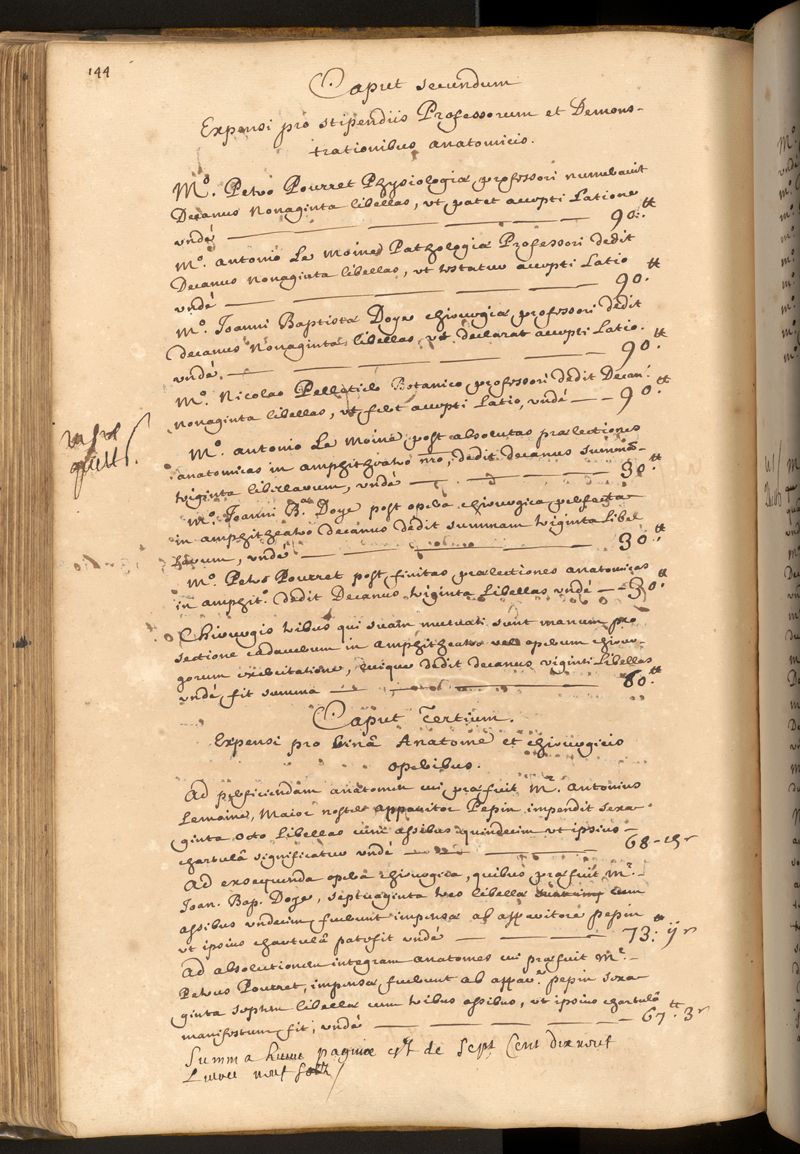 144
Caput secundum
Expensi pro stipendiis Professorum et Demons-
trationibus anatomicis.
Mº. Petro Pourret Physiologiæ professori numeravit
Decanus Nonaginta libellas, vt patet accepti Ratione
vndé 90.tt
Mº. Antonio Le Moine Pathologiæ Professori dedit
Decanus nonaginta libellas, vt testatur accepti Ratio
vndé 90.tt
Mº. Joanni Baptistæ Doye chirurgiæ professori dedit
Decanus Nonaginta libellas, vt declarat accepti Ratio.
vndé. 90.tt
Mº. Nicolao Pelletier Botanico professori dedit Decan.
nonaginta libellas, vt fert accepti Ratio, vndé 90.tt
Mº. Antonio Le Moine post absolutas prælectiones
anatomicas in amphitheatro nro, dedit decanus summã
triginta librarum, vndé 30.tt
Mº. Joanni B. Doye post opera chirurgica perfecta
in amphitheatro decanus dedit summam triginta libel
larum, vndé 30.tt
Mº. Petro Pourret post finitas prælectiones anatomicas
in amphit.º dedit Decanus triginta libellas vndé 30.tt
Chirurgis tribus qui suam mutuati sunt manum pro
sectione cadaverum in amphitheatro vel operum chirur-
gorum exercitatione, cuique dedit decanus viginti libellas
vndé fit summa 60.tt
Caput Tertium.
Expensi pro trinâ Anatome et chirurgicis
operibus.
Ad perficiendam anatomen cui præfuit Mr. Antonius
Lemoine, Maior noster apparitor Pepin impendit sexa-
ginta octo libellas cum assibus quindecim vt ipsius
chartulâ significatur vndé 68-15s
Ad exsequenda opera chirurgica, quibus præfuit Mr.
Joan. Bap. Doye, septuaginta tres libellæ cum
assibus vndecim fuerunt impensæ ab apparitore pepin
vt ipsius chartulâ patescit vndé 73: ijs
Ad absolutionem integram anatomes cui præfuit Mr.
Petrus Pourret, impensæ fuerunt ab appar.e pepin sexa-
ginta septem libellæ cum tribus assibus, vt ipsius chartulâ
manifestum fit, vndé 67.tt 3s
Summa huius paginæ est de Sept Cent dix neuf
Livres neuf solz